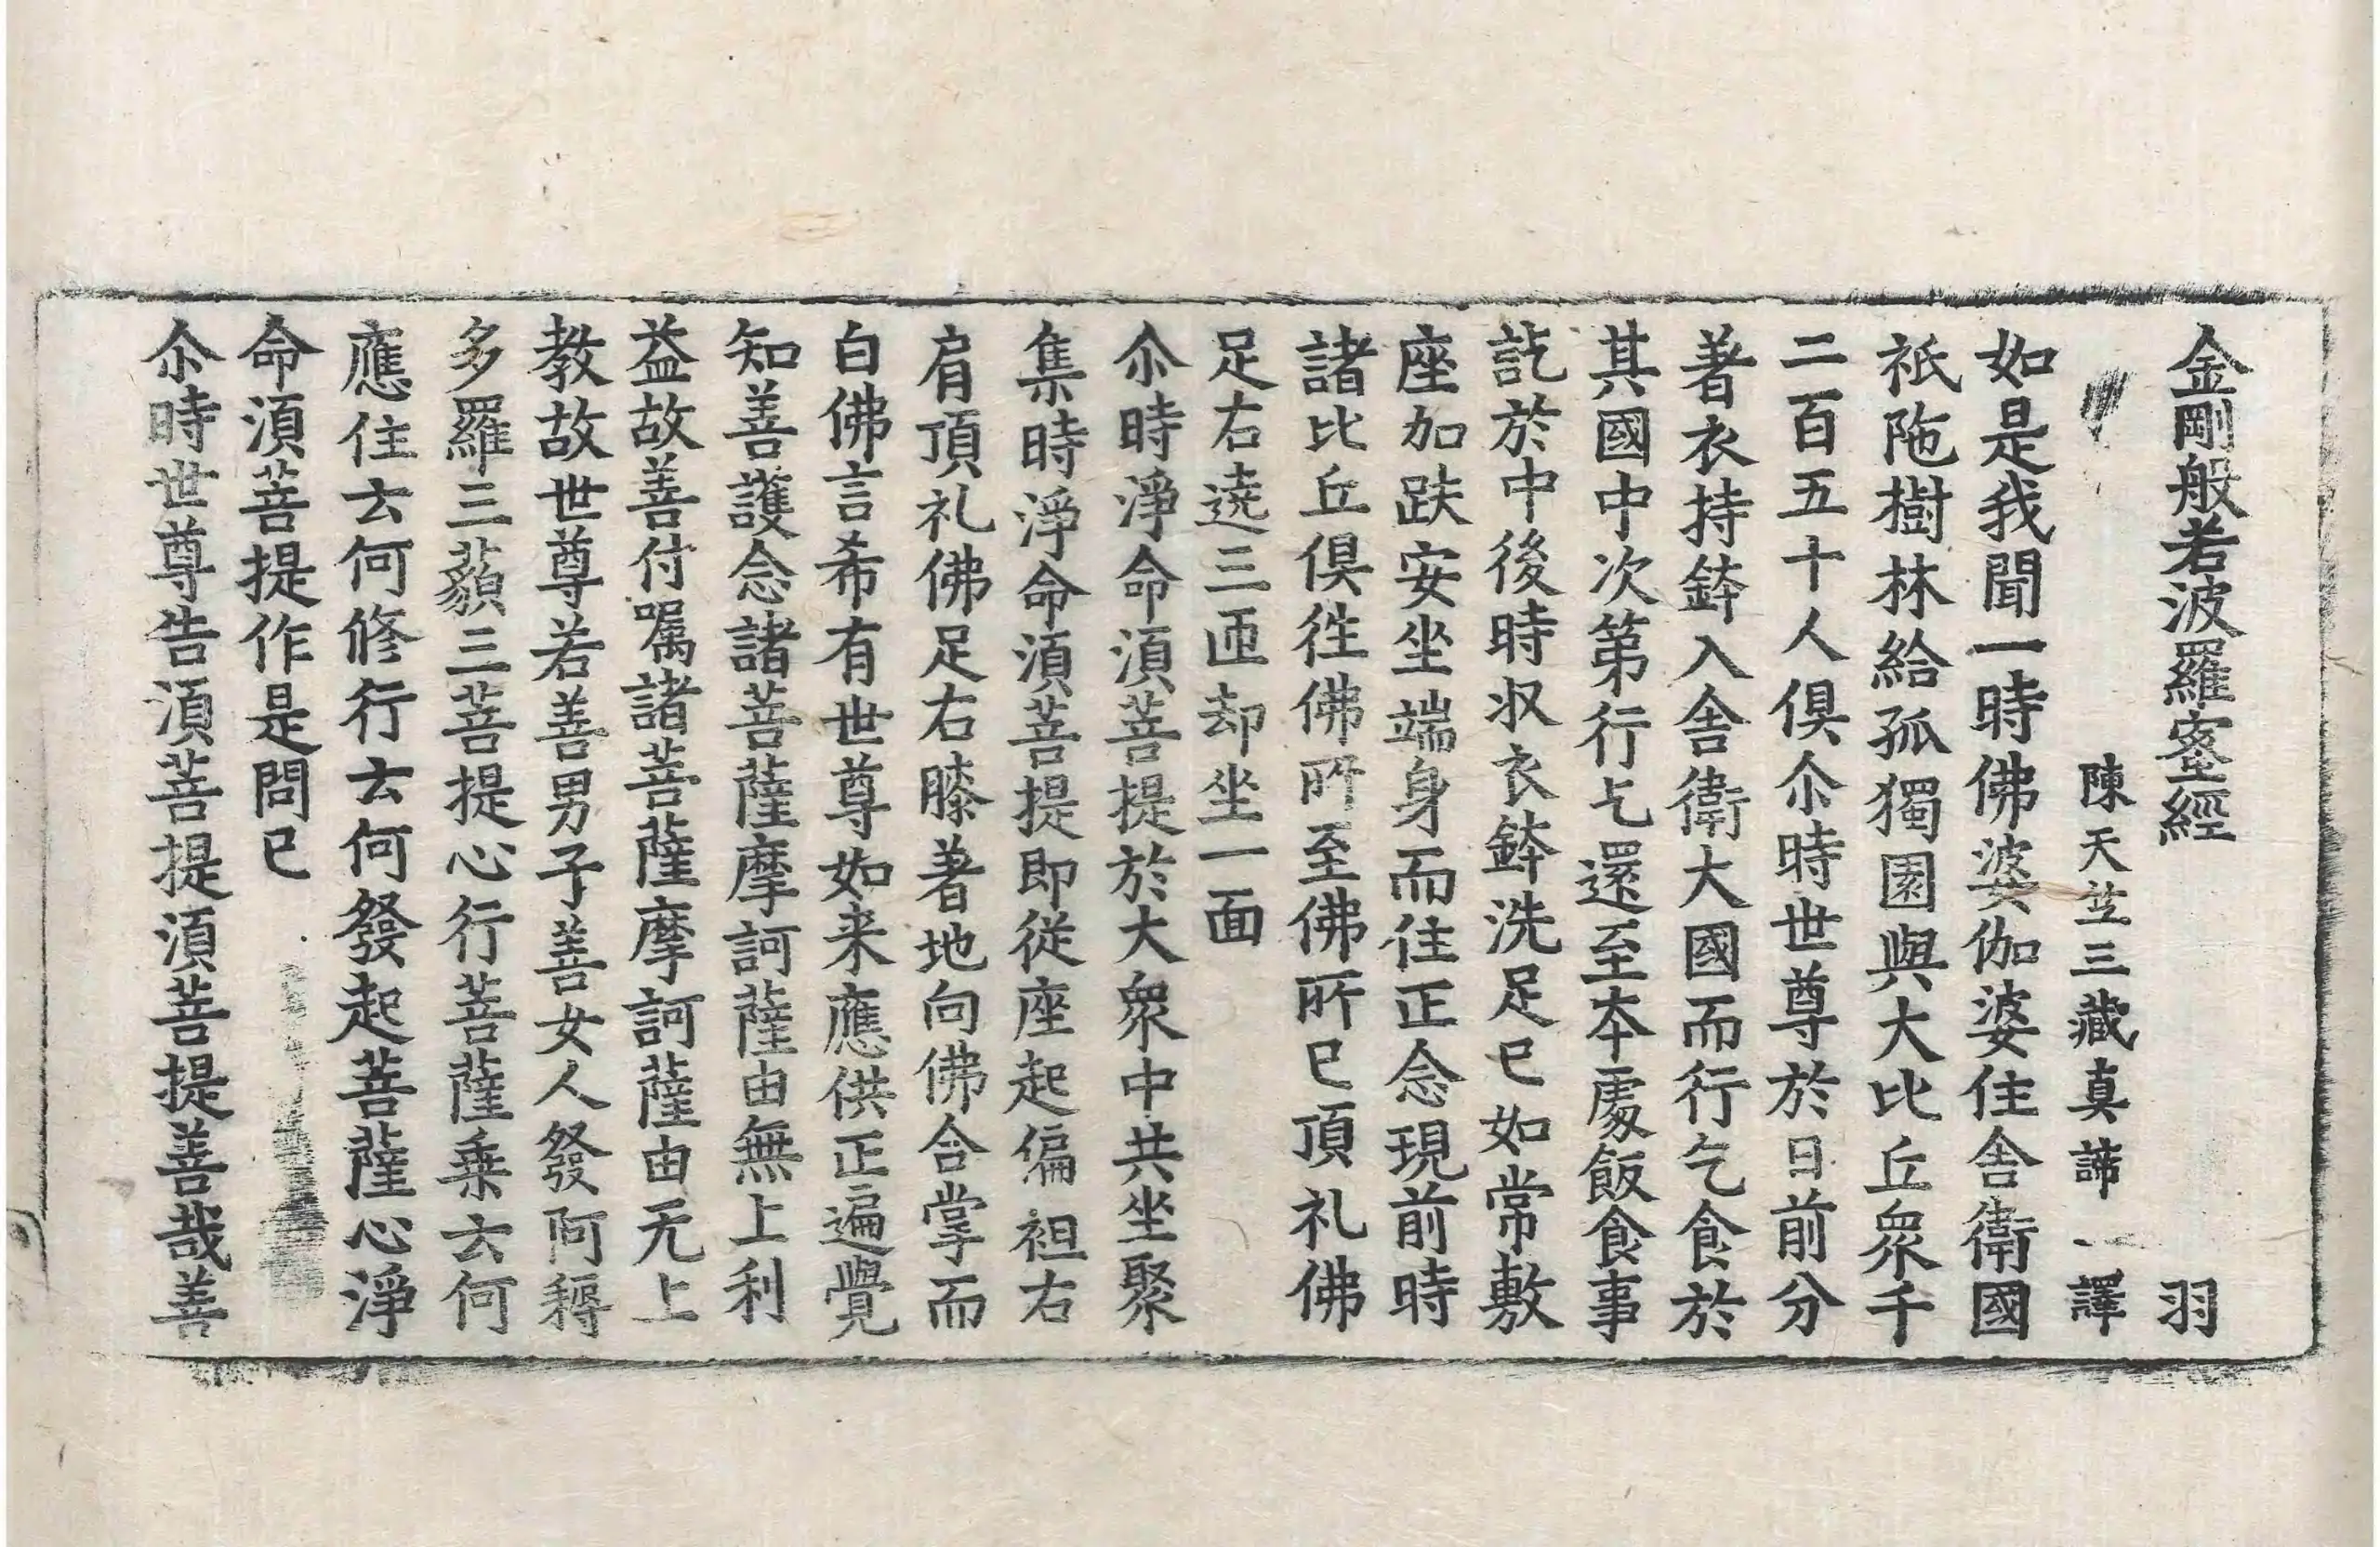 金剛般若波羅蜜經 羽
陳天竺三藏真諦 譯
如是我聞一時佛婆伽婆住舍衛國
祇陁樹林給孤獨園與大比丘眾千
二百五十人俱尒時世尊於日前分
著衣持鉢入舍衛大國而行乞食於
其國中次第行乞還至本處飯食事
訖於中後時収衣鉢洗足已如常敷
座加趺安坐端身而住正念現前時
諸比丘俱往佛所至佛所已頂礼佛
足右遶三匝却坐一面
尒時淨命須菩提於大眾中共坐聚
集時淨命須菩提即從座起偏袒右
肩頂礼佛足右膝著地向佛合掌而
白佛言希有世尊如来應供正遍覺
知善護念諸菩薩摩訶薩由無上利
益故善付囑諸菩薩摩訶薩由无上
教故世尊若善男子善女人發阿耨
多羅三藐三菩提心行菩薩乗云何
應住云何修行云何發起菩薩心淨
命須菩提作是問已
尒時世尊告須菩提須菩提善哉善